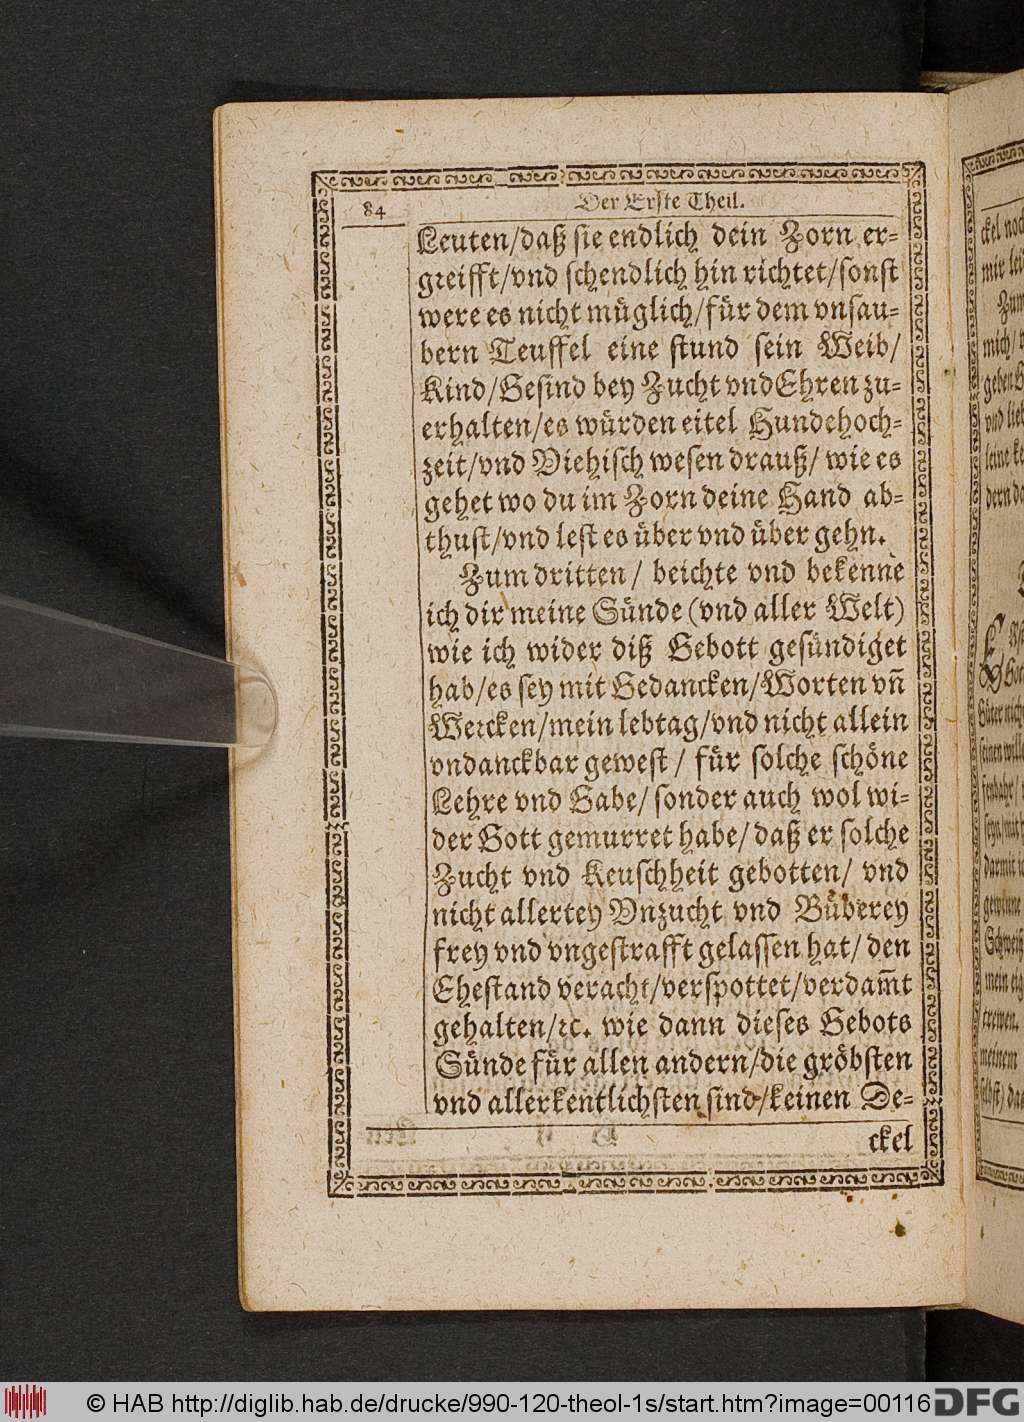 84
Der Erste Theil.
Leuten/daß sie endlich dein Zorn er-
greifft/vnd schendlich hin richtet/sonst
were es nicht müglich/für dem vnsau-
bern Teuffel eine stund sein Weib/
Kind/Gesind bey Zucht vnd Ehren zu-
erhalten/es würden eitel Hundehoch-
zeit/vnd Viehisch wesen drauß/ wie es
gehet wo du im Zorn deine Hand ab-
thust/vnd lest es über vnd über gehn.
Zum dritten/ beichte vnd bekenne
ich dir meine Sünde (vnd aller Welt)
wie ich wider diß Gebott gesündiget
hab/es sey mit Gedancken/Worten vn̄
Wercken/mein lebtag/vnd nicht allein
vndanckbar gewest/ für solche schöne
Lehre vnd Gabe/ sonder auch wol wi-
der Gott gemurret habe/ daß er solche
Zucht vnd Keuschheit gebotten/ vnd
nicht allerley Vnzucht vnd Büberey
frey vnd vngestrafft gelassen hat/ den
Ehestand veracht/verspottet/verdam̄t
gehalten/ꝛc. wie dann dieses Gebots
Sünde für allen andern/die gröbsten
vnd allerkentlichsten sind/keinen De-
ckel
ckel noch
mir
Zum
mich/
geben
vnd
dern
Güter nich
seinen
darmit
gewinne
Schweiß
mein eig
trewen.
meinem
© HAB http://diglib.hab.de/drucke/990-120-theol-1s/start.htm?image=00116
DFG